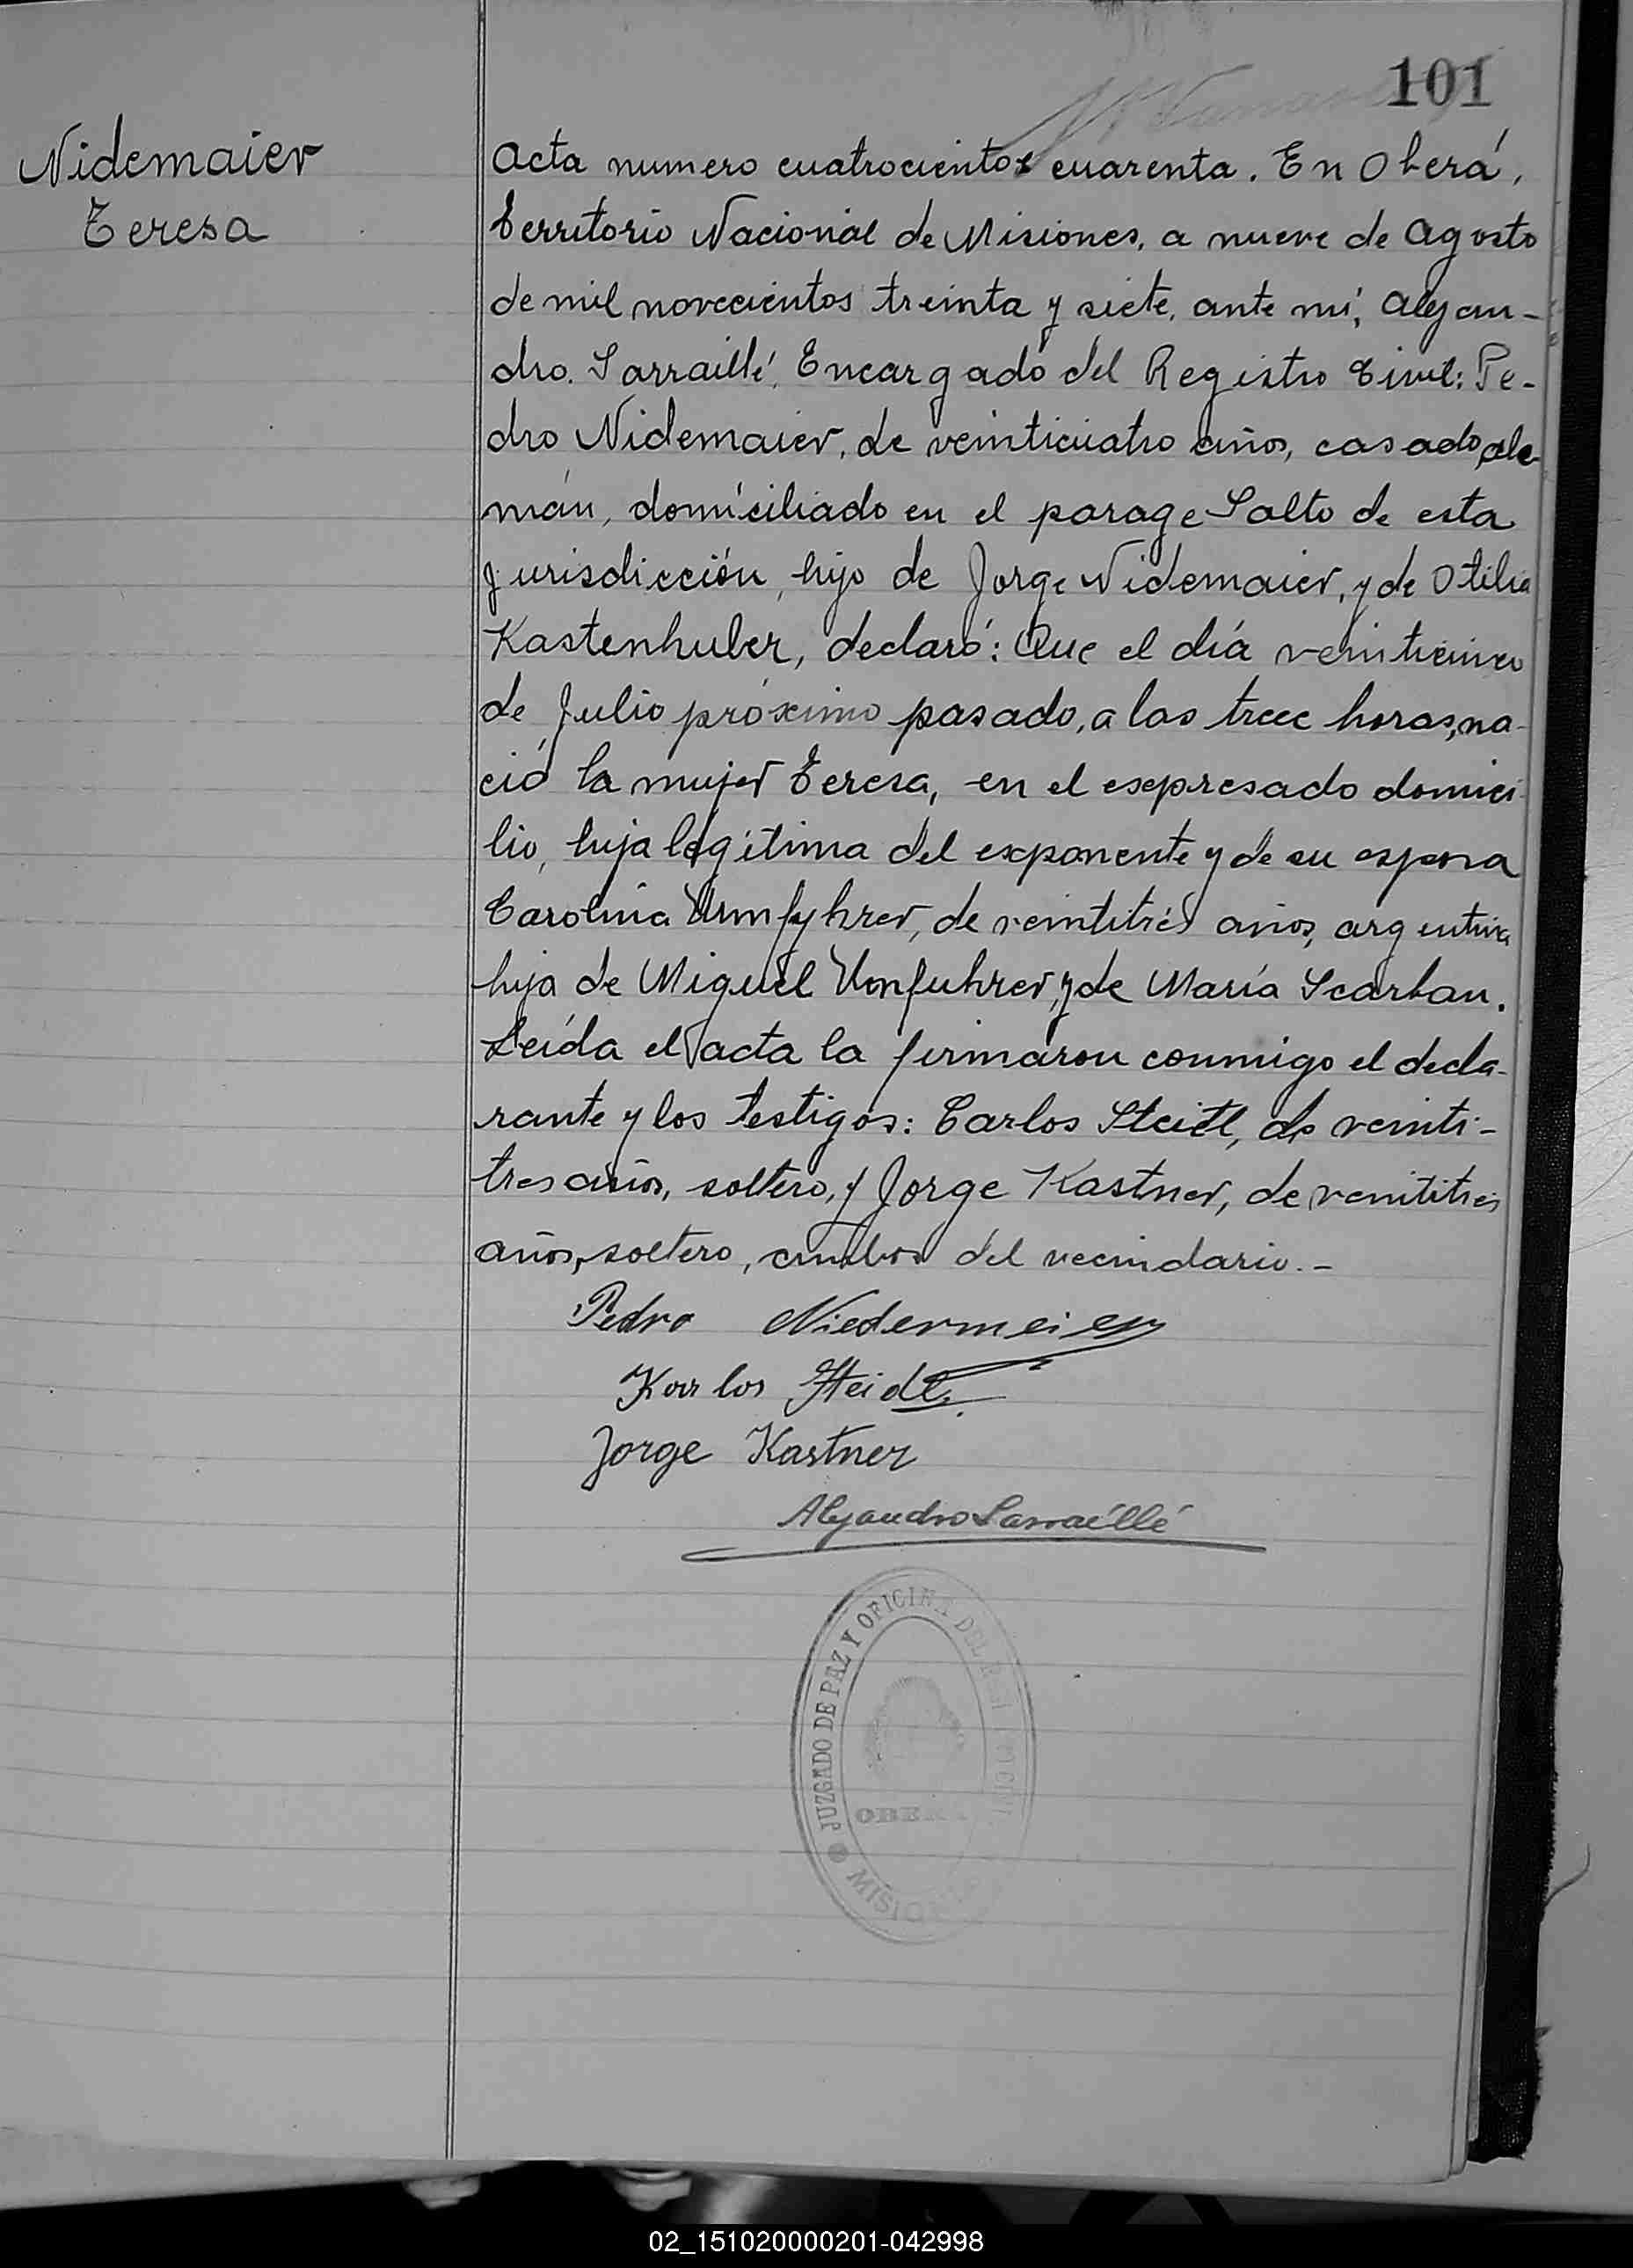 101
Nidemaier
Teresa
Acta numero cuatrocientos cuarenta. En Oberá,
Territorio Nacional de Misiones, a nueve de Agosto
de mil novecientos treinta y siete, ante mí, Alejan-
dro Sarraillé, Encargado del Registro Civil: Pe-
dro Nidemaier, de veinticuatro años, casado, ale-
mán, domiciliado en el parage Salto de esta
jurisdicción, hijo de Jorge Nidemaier, y de Otilia
Kastenhuber, declaró: Que el día veinticinco
de Julio próximo pasado, a las trece horas, na-
ció la mujer Teresa, en el expresado domici-
lio, hija legítima del exponente y de su esposa
Carolina Urmfyhrer, de veintitrés años, argentina
hija de Miguel Umfuhrer, y de María Scarban.
Leída el acta la firmaron conmigo el decla-
rante y los testigos: Carlos Steitl, de veinti-
tres años, soltero, y Jorge Kastner, de veintitres
años, soltero, ambos del vecindario.-
Pedro Niedermeier
Karlos Steidl
Jorge Kastner
Alejandro Sarraillé
JUZGADO DE PAZ Y OFICINA DEL
OBERA
MISIO
02_151020000201-042998